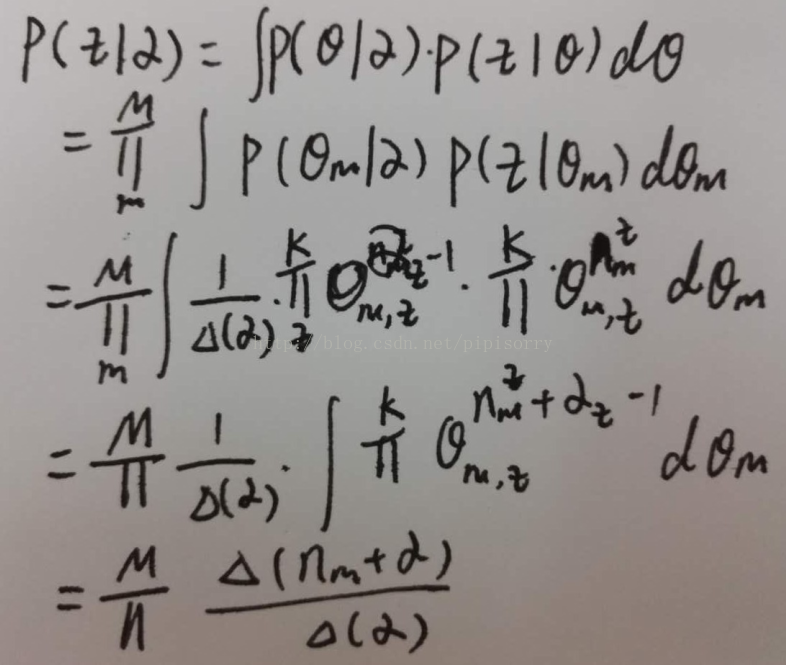 P(z|α) = ∫p(θ|α)·p(z|θ)dθ
= ∏_m^M ∫ p(θ_m|α) p(z|θ_m) dθ_m
= ∏_m^M ∫ 1/Δ(α) · ∏_z^K θ_{m,z}^{α_z-1} · ∏^K · θ_{m,z}^{n_m^z} dθ_m
http://blog.csdn.net/pipisorry
= ∏^M 1/Δ(α) · ∫ ∏^K θ_{m,z}^{n_m^z+α_z-1} dθ_m
= ∏^M Δ(n_m+α)/Δ(α)